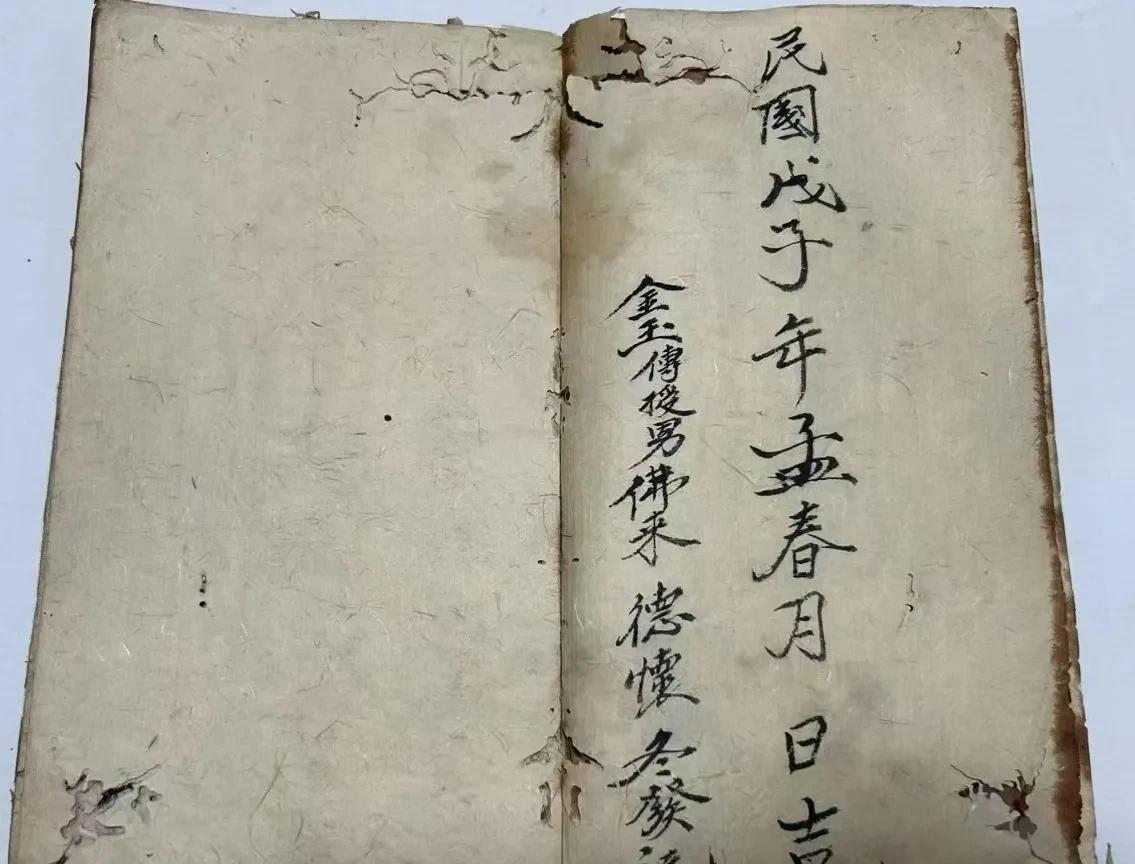 民國戊子年孟春月 日吉
金玉傳授男佛來 德懷 冬發